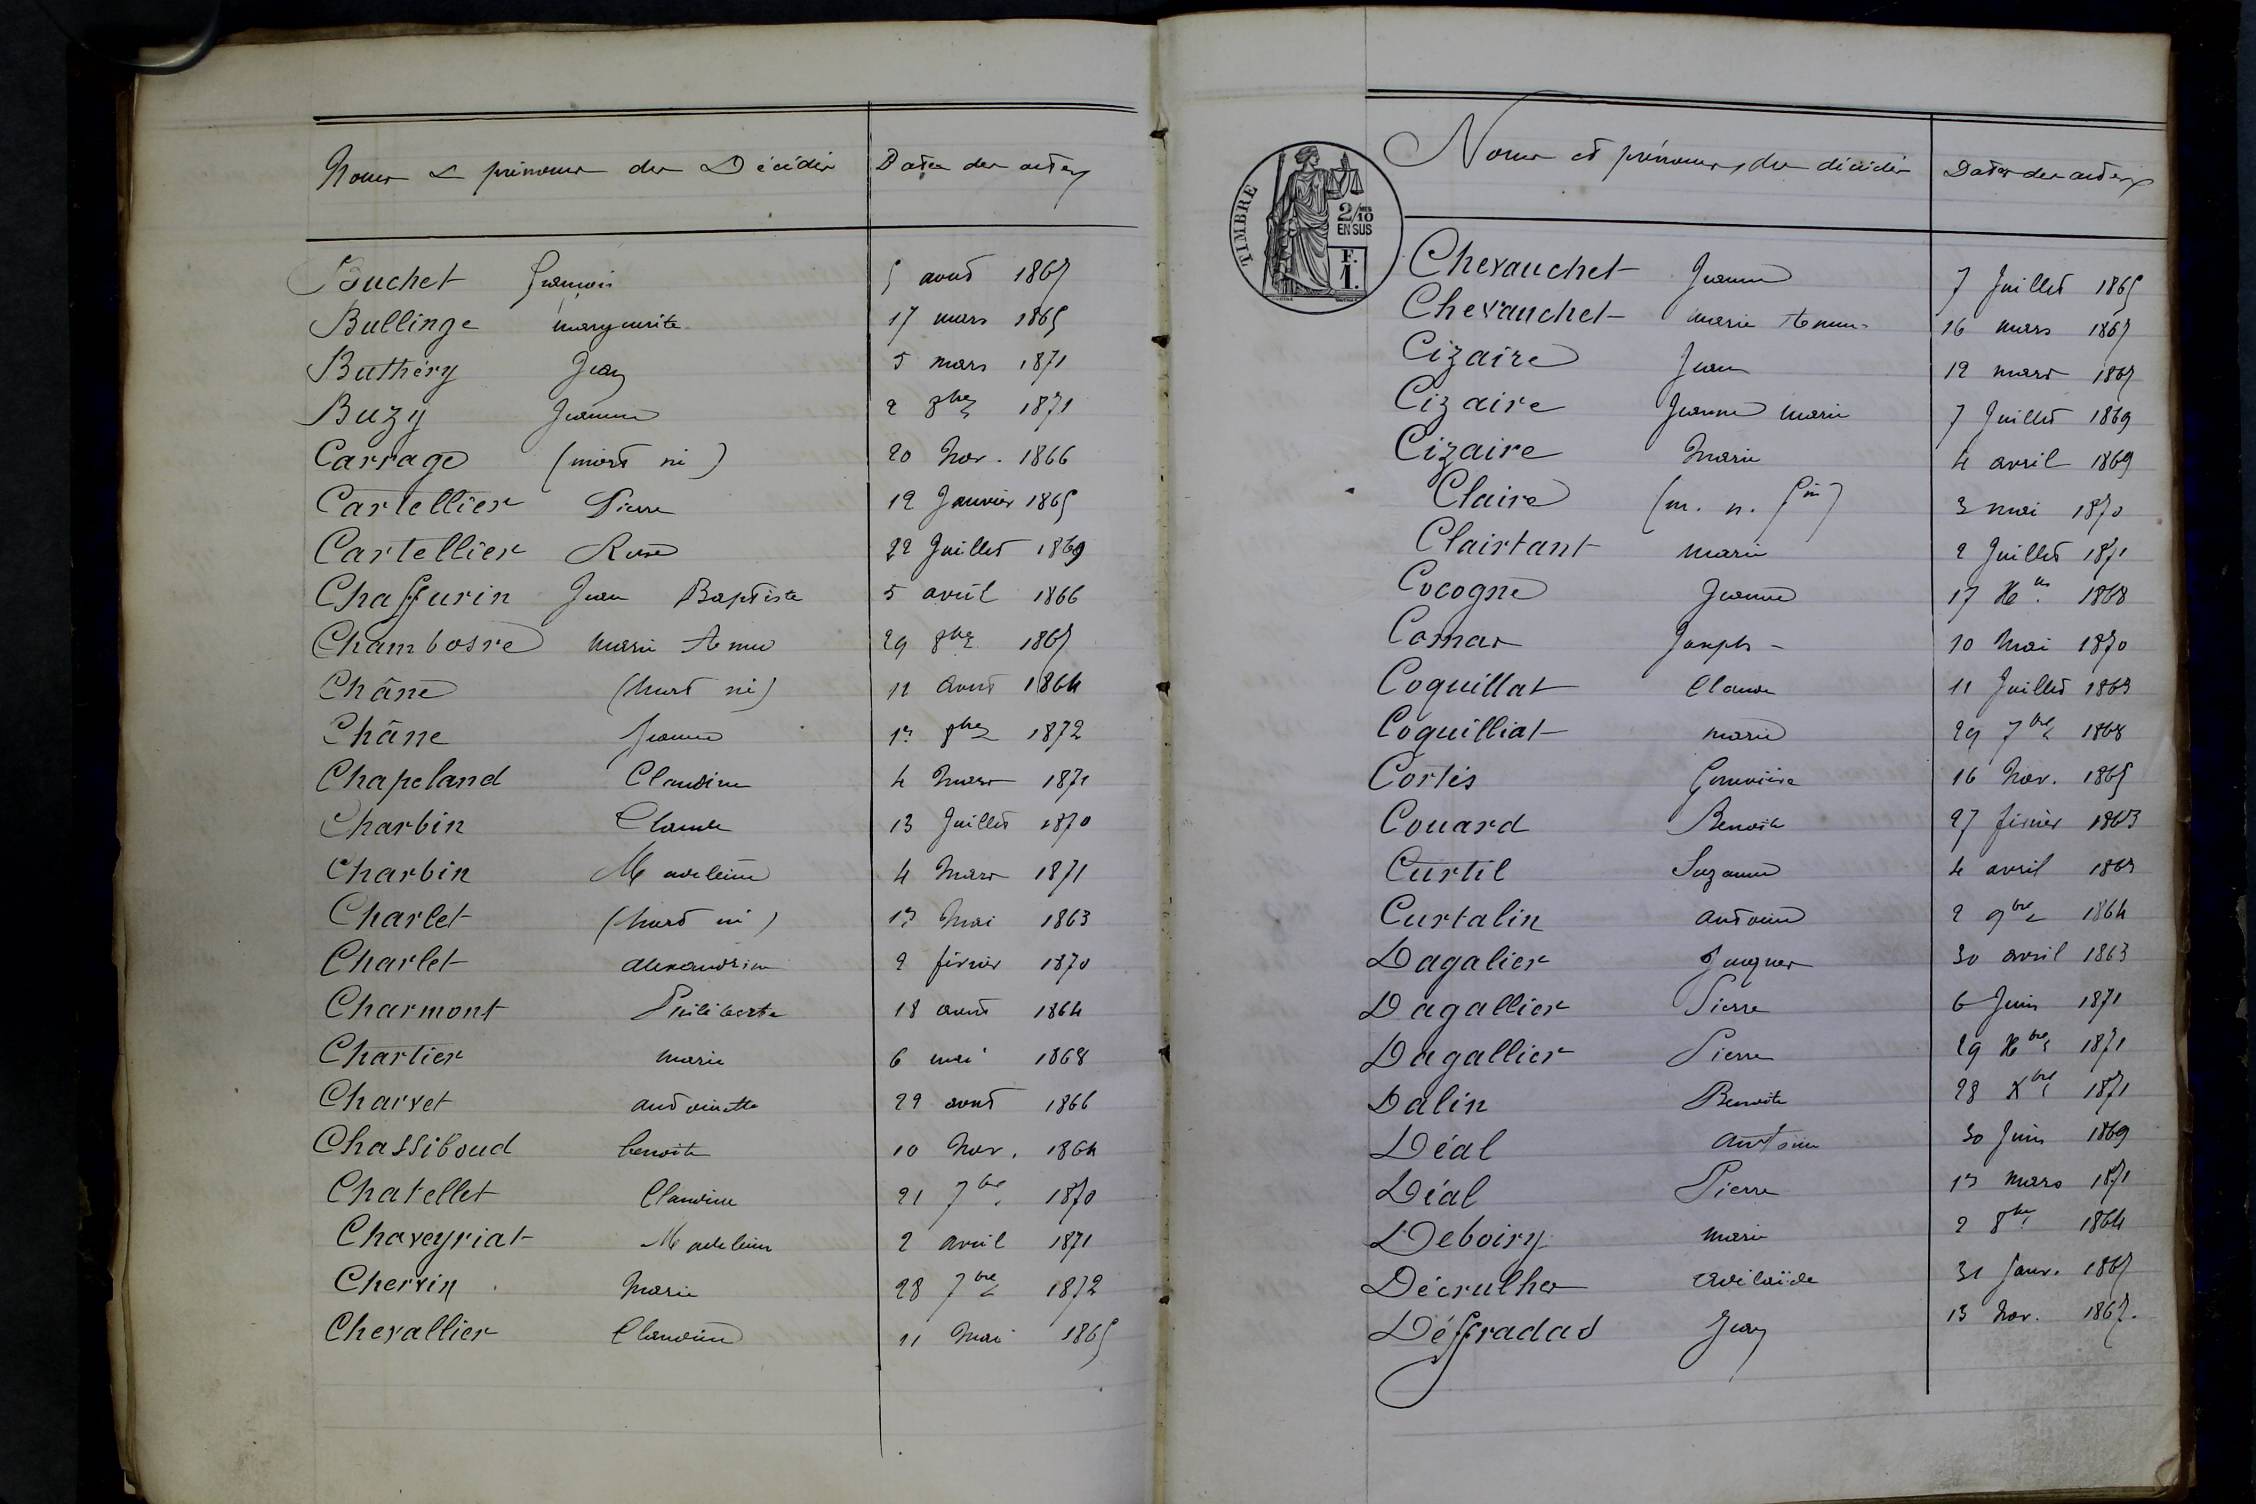 Noms & prénoms des Décédés Dates des actes
Buchet François 5 août 1867
Bullinge marguerite 17 mars 1865
Buthéry Jean 5 mars 1871
Buzy Jeanne 2 8bre 1871
Carrage (mort né) 20 Nov. 1866
Cartellier Pierre 12 Janvier 1865
Cartellier Rose 22 Juillet 1869
Chaffurin Jean Baptiste 5 avril 1866
Chambosre Marie Anne 29 8bre 1867
Châne (mort né) 11 août 1864
Châne Jeanne 1er 8bre 1872
Chapeland Claudine 4 Mars 1871
Charbin Claude 13 Juillet 1870
Charbin Madeleine 4 Mars 1871
Charlet (mort né) 13 Mai 1863
Charlet alexandrine 2 février 1870
Charmont Philiberte 18 août 1864
Chartier marie 6 mai 1868
Charvet antoinette 29 août 1866
Chassiboud benoite 10 Nov. 1864
Chatellet Claudine 21 7bre 1870
Chaveyriat Madeleine 2 avril 1871
Chervin Marie 28 7bre 1872
Chevallier Claudine 11 Mai 1865
TIMBRE
2/10 MES
EN SUS
F.
1.
Noms et prénoms des décédés Dates des actes
Chevauchet Jeanne 7 Juillet 1865
Chevauchet marie Anne 16 mars 1867
Cizaire Jean 12 mars 1867
Cizaire Jeanne Marie 7 Juillet 1869
Cizaire Marie 4 avril 1869
Claire (m. n. fin) 3 mai 1870
Clairtant Marie 2 Juillet 1871
Cocogne Jeanne 17 Xbre 1868
Comar Joseph 10 Mai 1870
Coquillat Claude 11 Juillet 1863
Coquilliat marie 29 7bre 1868
Cortès Geneviève 16 Nov. 1865
Couard Benoite 27 février 1863
Curtil Suzanne 4 avril 1863
Curtalin antoine 2 9bre 1864
Dagalier Jacques 30 avril 1863
Dagallier Pierre 6 Juin 1871
Dagallier Pierre 29 Xbre 1871
Dalin Benoite 28 Xbre 1871
Déal Antoine 30 Juin 1869
Déal Pierre 13 mars 1871
Deboiry Marie 2 8bre 1864
Décrulhe adélaïde 31 Janv. 1867
Déffradad Jean 13 Nov. 1867.